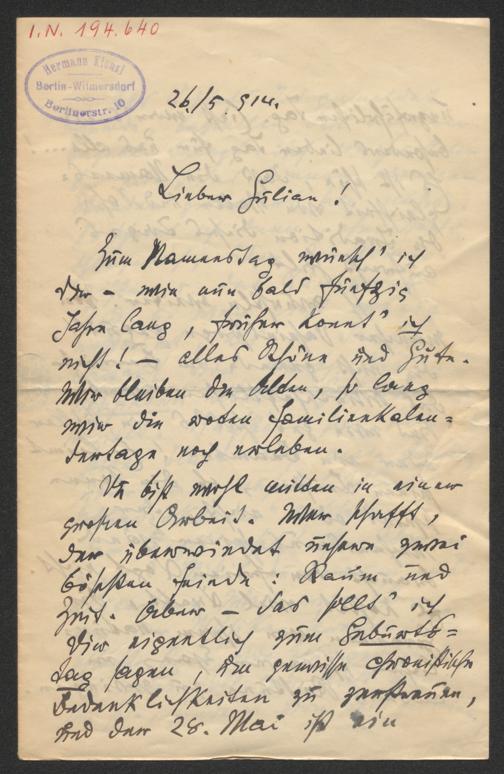 I.N. 194.640
Hermann Kienzl
Berlin-Wilmersdorf
Berlinerstr. 10
26./5. 914.
Lieber Julian!
Zum Namenstag wünsch' ich
dir – wie nun bald fünfzig
Jahre lang, früher konnt' ich
nicht! – alles Schöne und Gute.
Wir bleiben die Alten, so lang
wir die roten Familienkalen=
dertage noch erleben.
Du bist wohl mitten in einer
großen Arbeit. Wer schafft,
der überwindet unsere zwei
bösesten Feinde: Raum und
Zeit. Aber – das sollt' ich
dir eigentlich zum Geburts=
tag sagen, um gewisse chronistische
Bedenklichkeiten zu zerstreuen,
und der 28. Mai ist ein